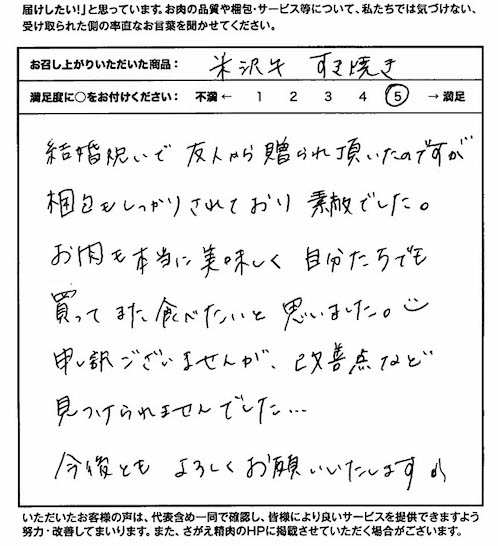 届けしたい！」と思っています。お肉の品質や梱包・サービス等について、私たちでは気づけない、
受け取られた側の率直なお言葉を聞かせてください。
お召し上がりいただいた商品： 米沢牛 すき焼き
満足度に○をお付けください： 不満 ← 1 2 3 4 5 → 満足
結婚祝いで 友人から贈られ頂いたのですが
梱包もしっかりされており 素敵でした。
お肉も本当に美味しく 自分たちでも
買って また 食べたいと 思いました。
申し訳ございませんが、改善点など
見つけられませんでした…
今後とも よろしくお願いいたします
いただいたお客様の声は、代表含め一同で確認し、皆様により良いサービスを提供できますよう
努力・改善してまいります。また、さがえ精肉のHPに掲載させていただく場合がございます。